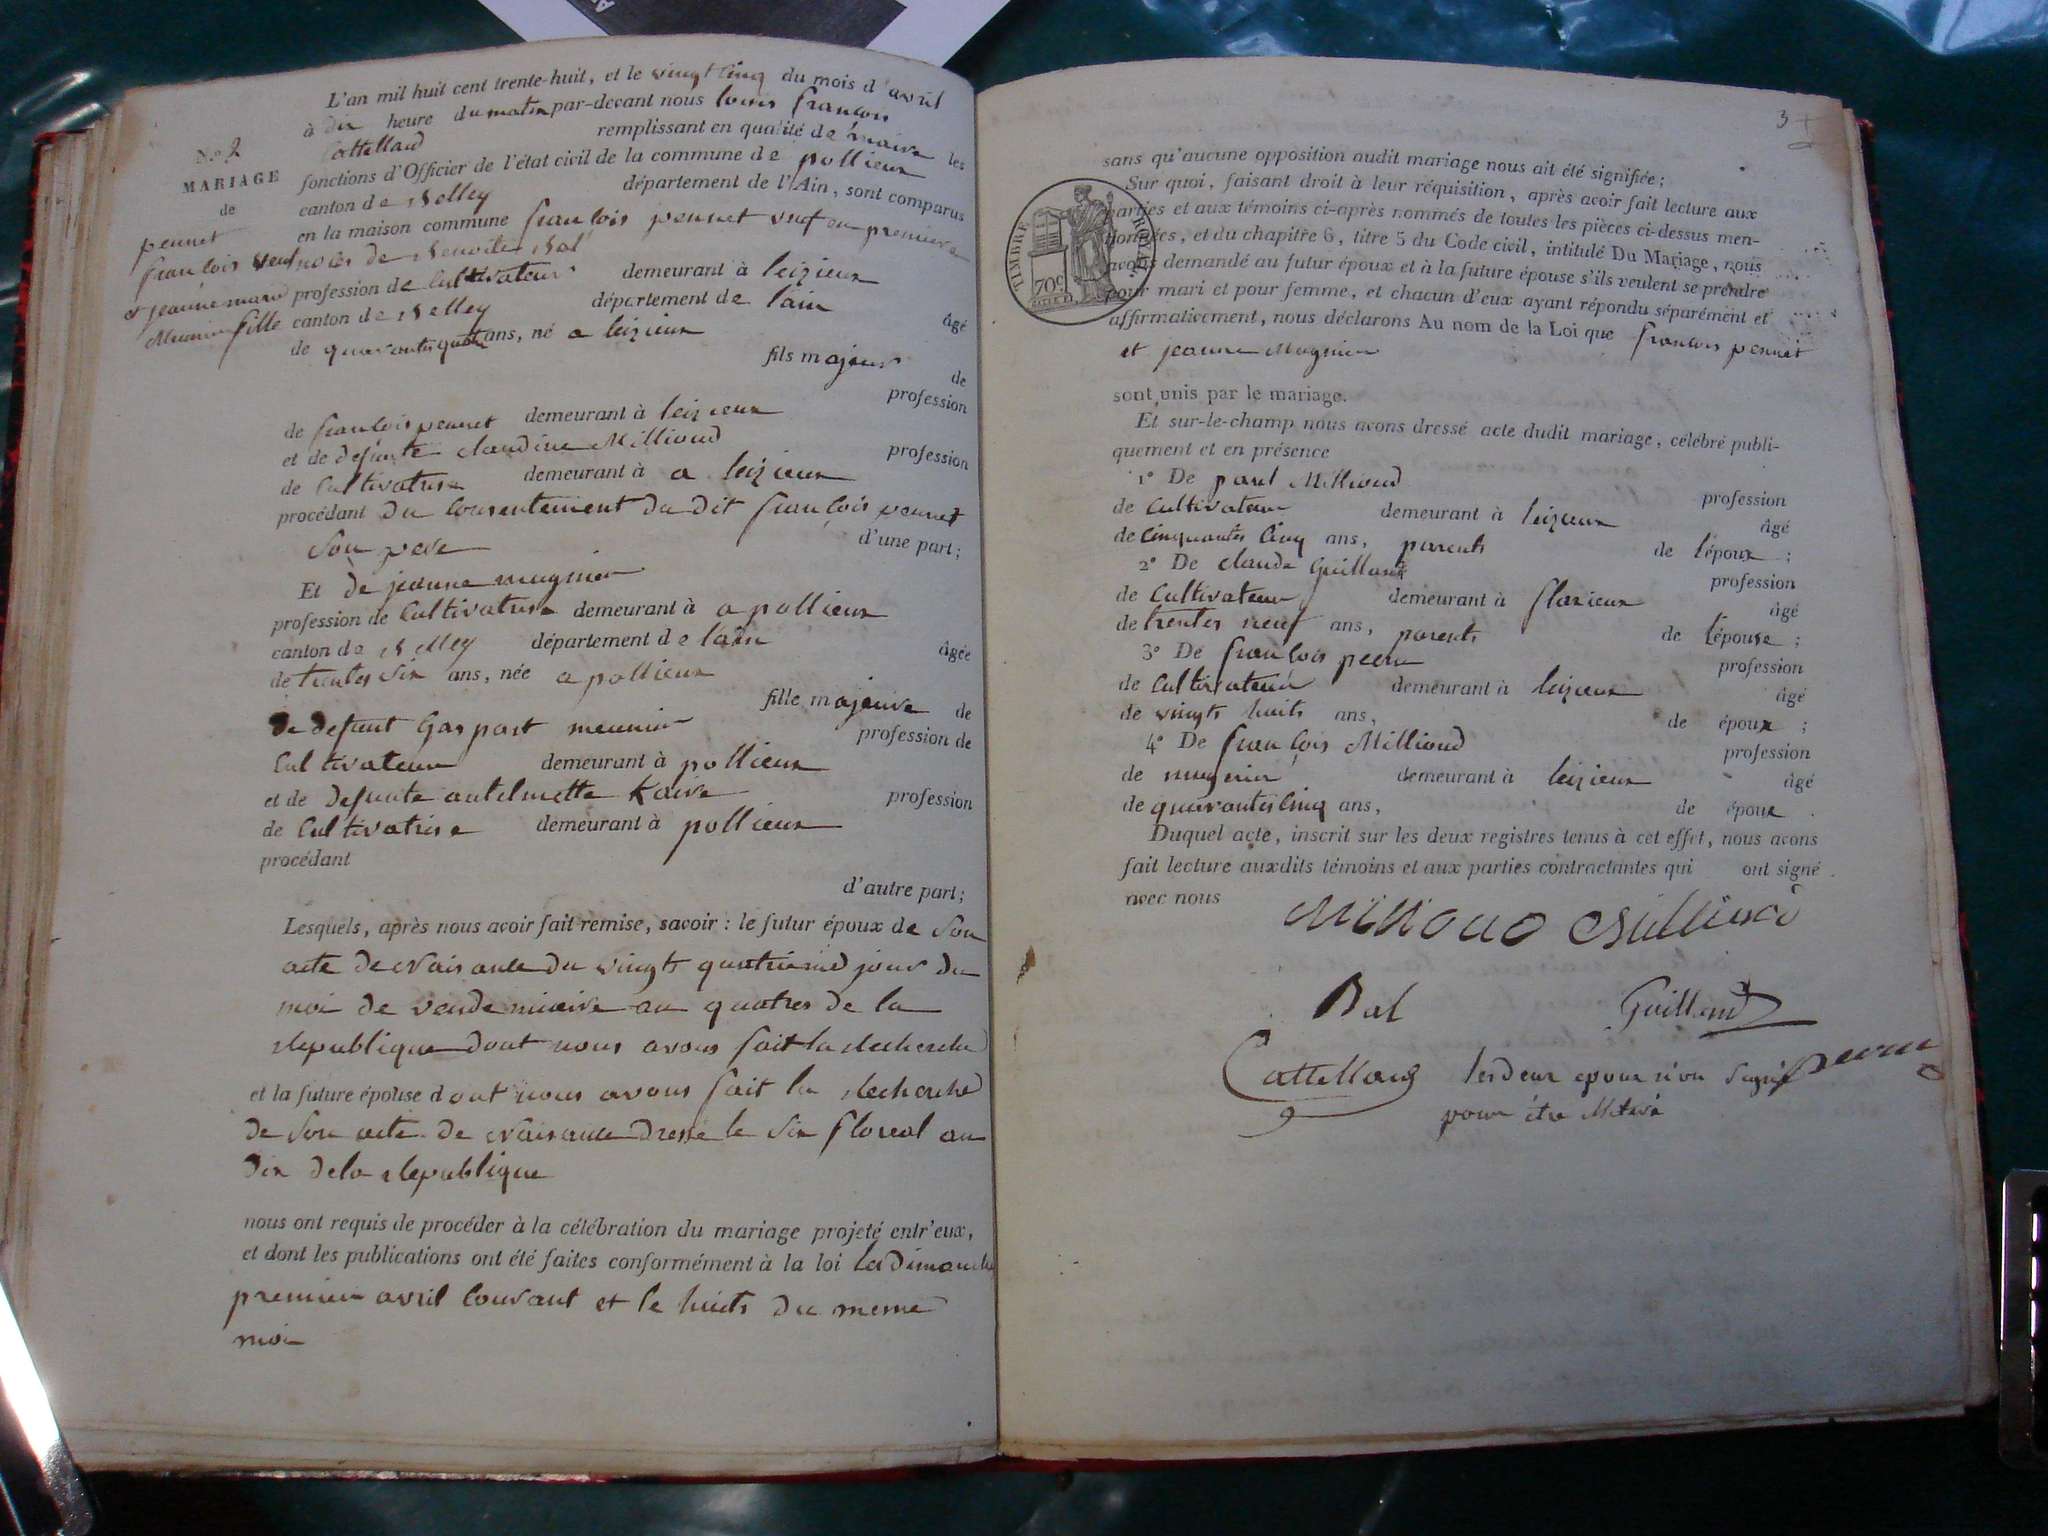 L'an mil huit cent trente-huit, et le vingt cinq du mois d'avril
à dix heure du matin par-devant nous louis françois
Cattelland remplissant en qualité de maire les
fonctions d'Officier de l'état civil de la commune de pollieux
canton de Belley département de l'Ain, sont comparus
en la maison commune françois pennet veuf en premiere
noces de Benoite Bal
profession de Cultivateur demeurant à leizieux
canton de Belley département de lain
âgé
de quarante quatre ans, né a leizieux
fils majeur de
profession
de françois pennet demeurant à leizieux
et de defunte claudine Millioud
profession
de Cultivatrise demeurant à a leizieux
procédant du consentement du dit françois pennet
son pere d'une part;
Et de jeanne mugnier
profession de Cultivatrise demeurant à a pollieux
canton de Belley département de lain
âgée
de trentes six ans, née a pollieux
fille majeure de
de defunt Gaspart meunier profession de
Cultivateur demeurant à pollieux
et de defunte antelmette Kaire profession
de Cultivatrise demeurant à pollieux
procédant
d'autre part;
Lesquels, après nous avoir fait remise, savoir : le futur époux de son
acte de naisance du vingts quatrieme jour du
moi de vendemiaire an quatres de la
republique dont nous avons fait la recherche
et la future épouse dont nous avons fait la recherche
de son acte de naisance dressé le six floreal an
dix de la republique
nous ont requis de procéder à la célébration du mariage projeté entr'eux,
et dont les publications ont été faites conformément à la loi le dimanche
premier avril courant et le huits du meme
moi
N.o 2
MARIAGE
de
pennet
françois veuf
et jeanne marie
Meunier fille
3
sans qu'aucune opposition audit mariage nous ait été signifiée;
Sur quoi, faisant droit à leur réquisition, après avoir fait lecture aux
parties et aux témoins ci-après nommés de toutes les pièces ci-dessus men-
tionnées, et du chapitre 6, titre 5 du Code civil, intitulé Du Mariage, nous
avons demandé au futur époux et à la future épouse s'ils veulent se prendre
pour mari et pour femme, et chacun d'eux ayant répondu séparément et
affirmativement, nous déclarons Au nom de la Loi que françois pennet
et jeanne Mugnier
sont unis par le mariage.
Et sur-le-champ nous avons dressé acte dudit mariage, célébré publi-
quement et en présence
1° De paul Millioud
profession
de Cultivateur demeurant à leizieux
âgé
de cinquantes cinq ans, parents de lépoux ;
2° De claude Guilland
profession
de Cultivateur demeurant à flaxieux
âgé
de trentes neuf ans, parents de lépouse ;
3° De françois peern
profession
de Cultivateur demeurant à leizieux
âgé
de vingts huits ans, de époux ;
4° De françois Millioud
profession
de demeurant à leizieux
âgé
de quarantes cinq ans, de époux .
Duquel acte, inscrit sur les deux registres tenus à cet effet, nous avons
fait lecture auxdits témoins et aux parties contractantes qui ont signé
avec nous
Millioud Millioud
Bal Guilland
Cattelland les deux epoux n'on signé
pour être Metivé
TIMBRE ROYAL
70c